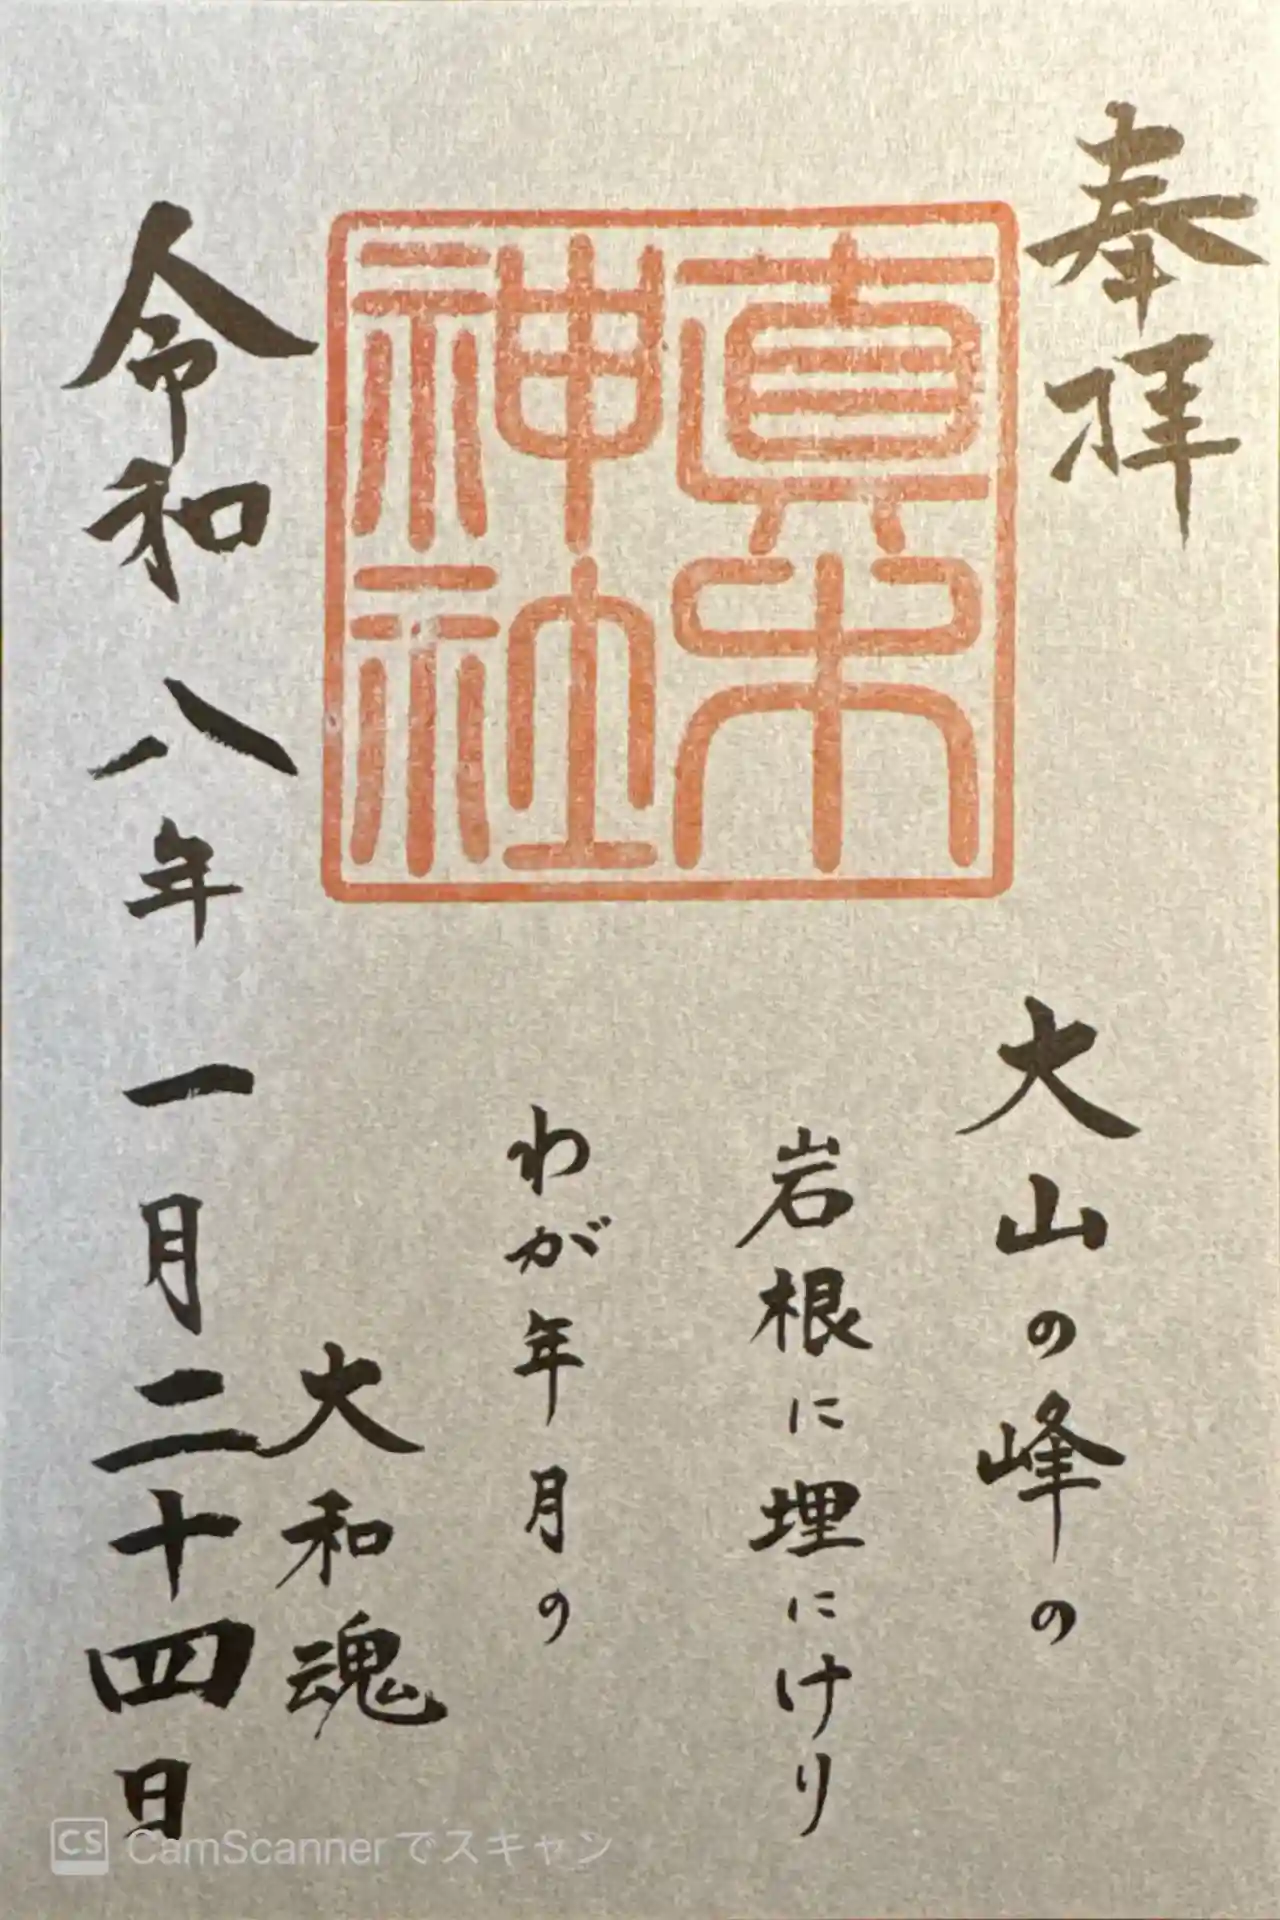 奉拝
真木
神社
大山の峰の
岩根に埋にけり
わが年月の
大和魂
令和八年一月二十四日
CS CamScannerでスキャン